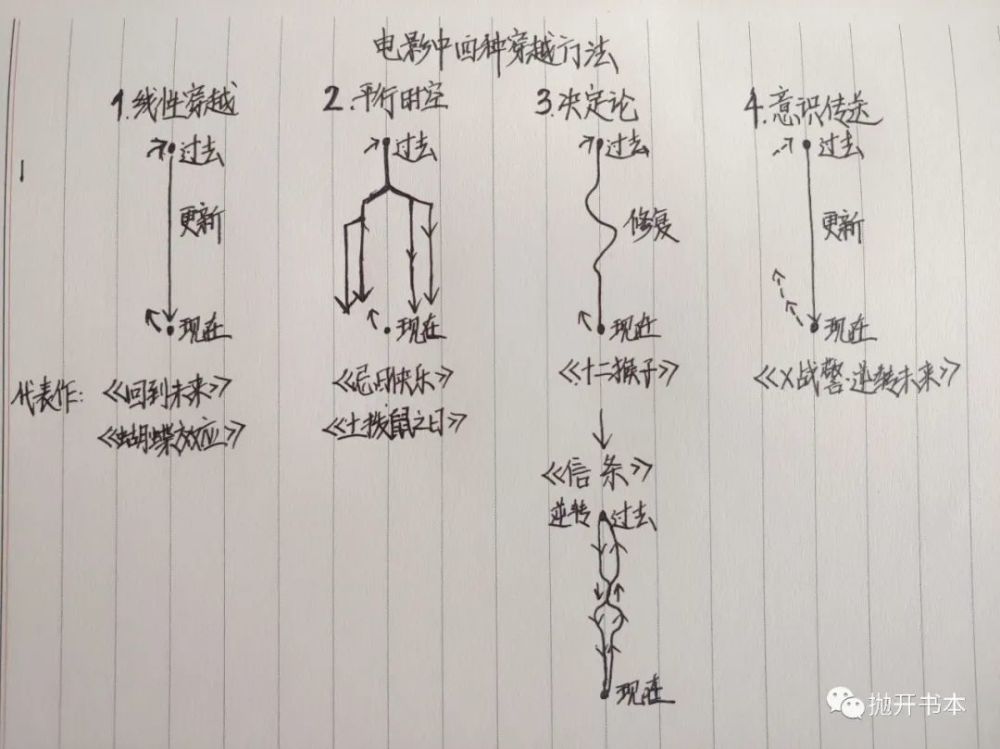 电影中四种穿越方法
1.线性穿越
过去
更新
现在
代表作:《回到未来》
《蝴蝶效应》
2.平行时空
过去
现在
《忌日快乐》
《土拨鼠之日》
3.决定论
过去
修复
现在
《十二猴子》
《信条》
逆转 过去
现在
4.意识传送
过去
更新
现在
《X战警·逆转未来》
抛开书本